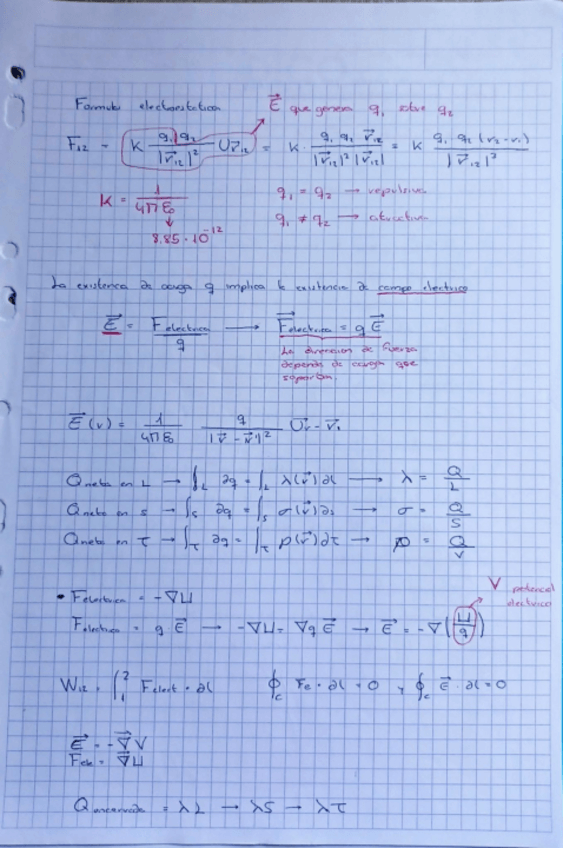 Formula electroestatica
E⃗ que genera q₁ sobre q₂
F₁₂ = K q₁ q₂ / |r⃗₁₂|² Ur⃗₁₂ = K · q₁ q₂ r⃗₁₂ / |r⃗₁₂|² |r⃗₁₂| = K q₁ q₂ (r₂ - r₁) / |r⃗₁₂|³
K = 1 / 4πε₀
q₁ = q₂ → repulsiva
q₁ ≠ q₂ → atractiva
8.85 · 10⁻¹²
La existencia de carga q implica la existencia de campo electrico
E⃗ = F electrica / q → F⃗ electrica = q E⃗
La direccion de fuerza
depende de carga que
soportan.
E⃗(r) = 1 / 4πε₀ q / |r⃗ - r⃗'|² U⃗r - r⃗.
Q neta en L → ∫L ∂q = ∫L λ(r⃗)∂l → λ = Q / L
Q neta en S → ∫S ∂q = ∫S σ(r⃗)∂s → σ = Q / S
Q neta en τ → ∫τ ∂q = ∫τ ρ(r⃗)∂τ → ρ = Q / V
V potencial
electrico
• Felectrica = -∇U
Felectrica = q E⃗ → -∇U = ∇q E⃗ → E⃗ = -∇(U / q)
W₁₂ = ∫₁² Felect · ∂l ∮c Fe · ∂l = 0 y ∮c E⃗ · ∂l = 0
E⃗ = -∇⃗V
Fele = ∇⃗U
Q encerrada = λL → λS → λτ